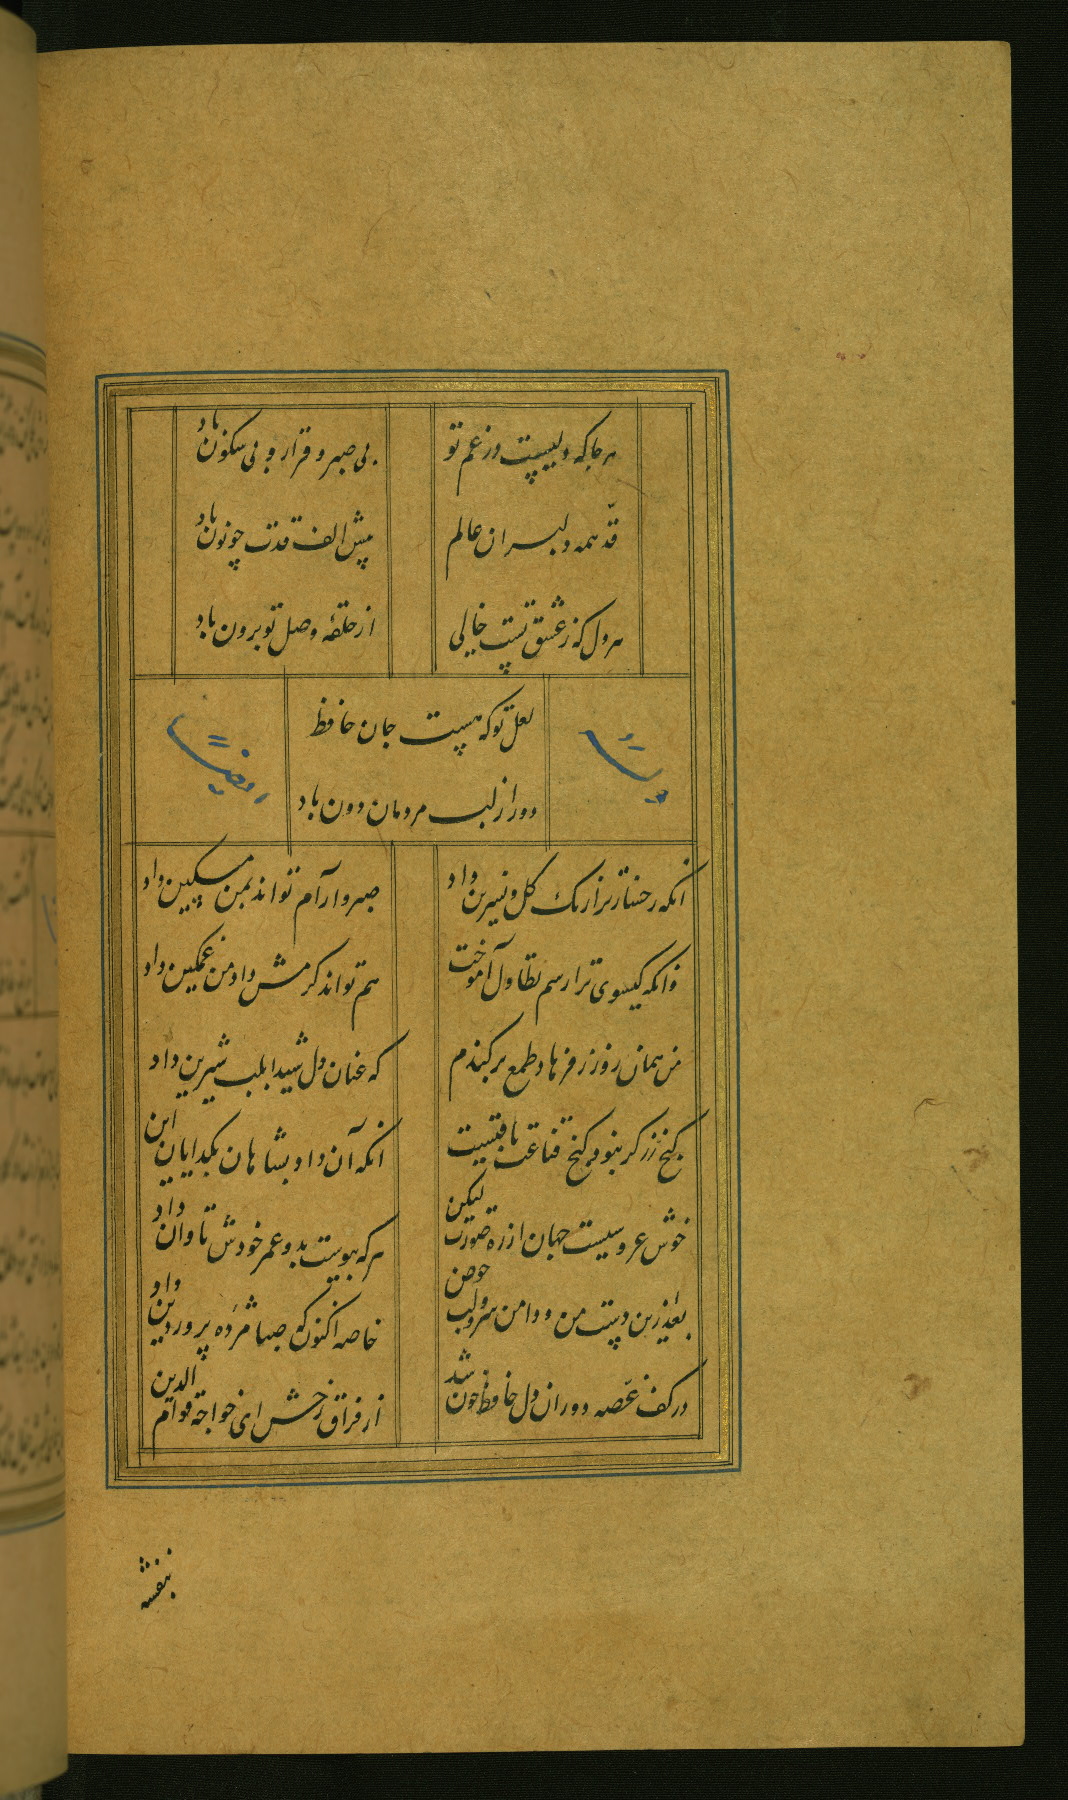 هرجا که دلیست در غم تو
بی صبر و قرار و بی سکون باد
قدّ همه دلبران عالم
پیش الف قدت چو نون باد
هر دل که ز عشق تست خالی
از حلقه وصل تو برون باد
لعل تو که هست جان حافظ
دور از لب مردمان دون باد
انکه رخسار ترا رنک کل و نسرین داد
صبر و ارآم تواند بمن مسکین داد
وانکه کیسوی ترا رسم تطاول آموخت
هم تواند کرمش داد من غمکین داد
من همان روز ز فرهاد طمع برکندم
که عنان دل شیدا بلب شیرین داد
کنج زر کر نبود کنج قناعت باقیست
انکه آن داد بشاهان بکدایان این داد
خوش عروسیست جهان از ره صورت لیکن
هر که پیوست بدو عمر خودش تاوان داد
بعد ازین دست من و دامن سرو و لب جوض
خاصه اکنون که صبا مژده پروردین داد
در کف غصه دوران دل حافظ خون شد
از فراق رخش ای خواجه قوام الدین
بنفشه